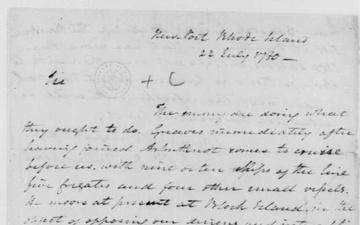 New Port Rhode Island
22 July 1780 -
Sir + C
The enemy are doing what
they ought to do. Greaves immediately after
having joined Arbuthnot comes to cruise
before us, with nine or ten ships of the line
five frigates and four other small vessels.
He moors at present at Block Island, in the
object of opposing our